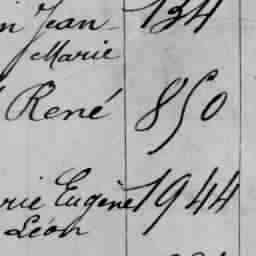 Jean 134
Marie
René 850
Eugène 1944
Léon